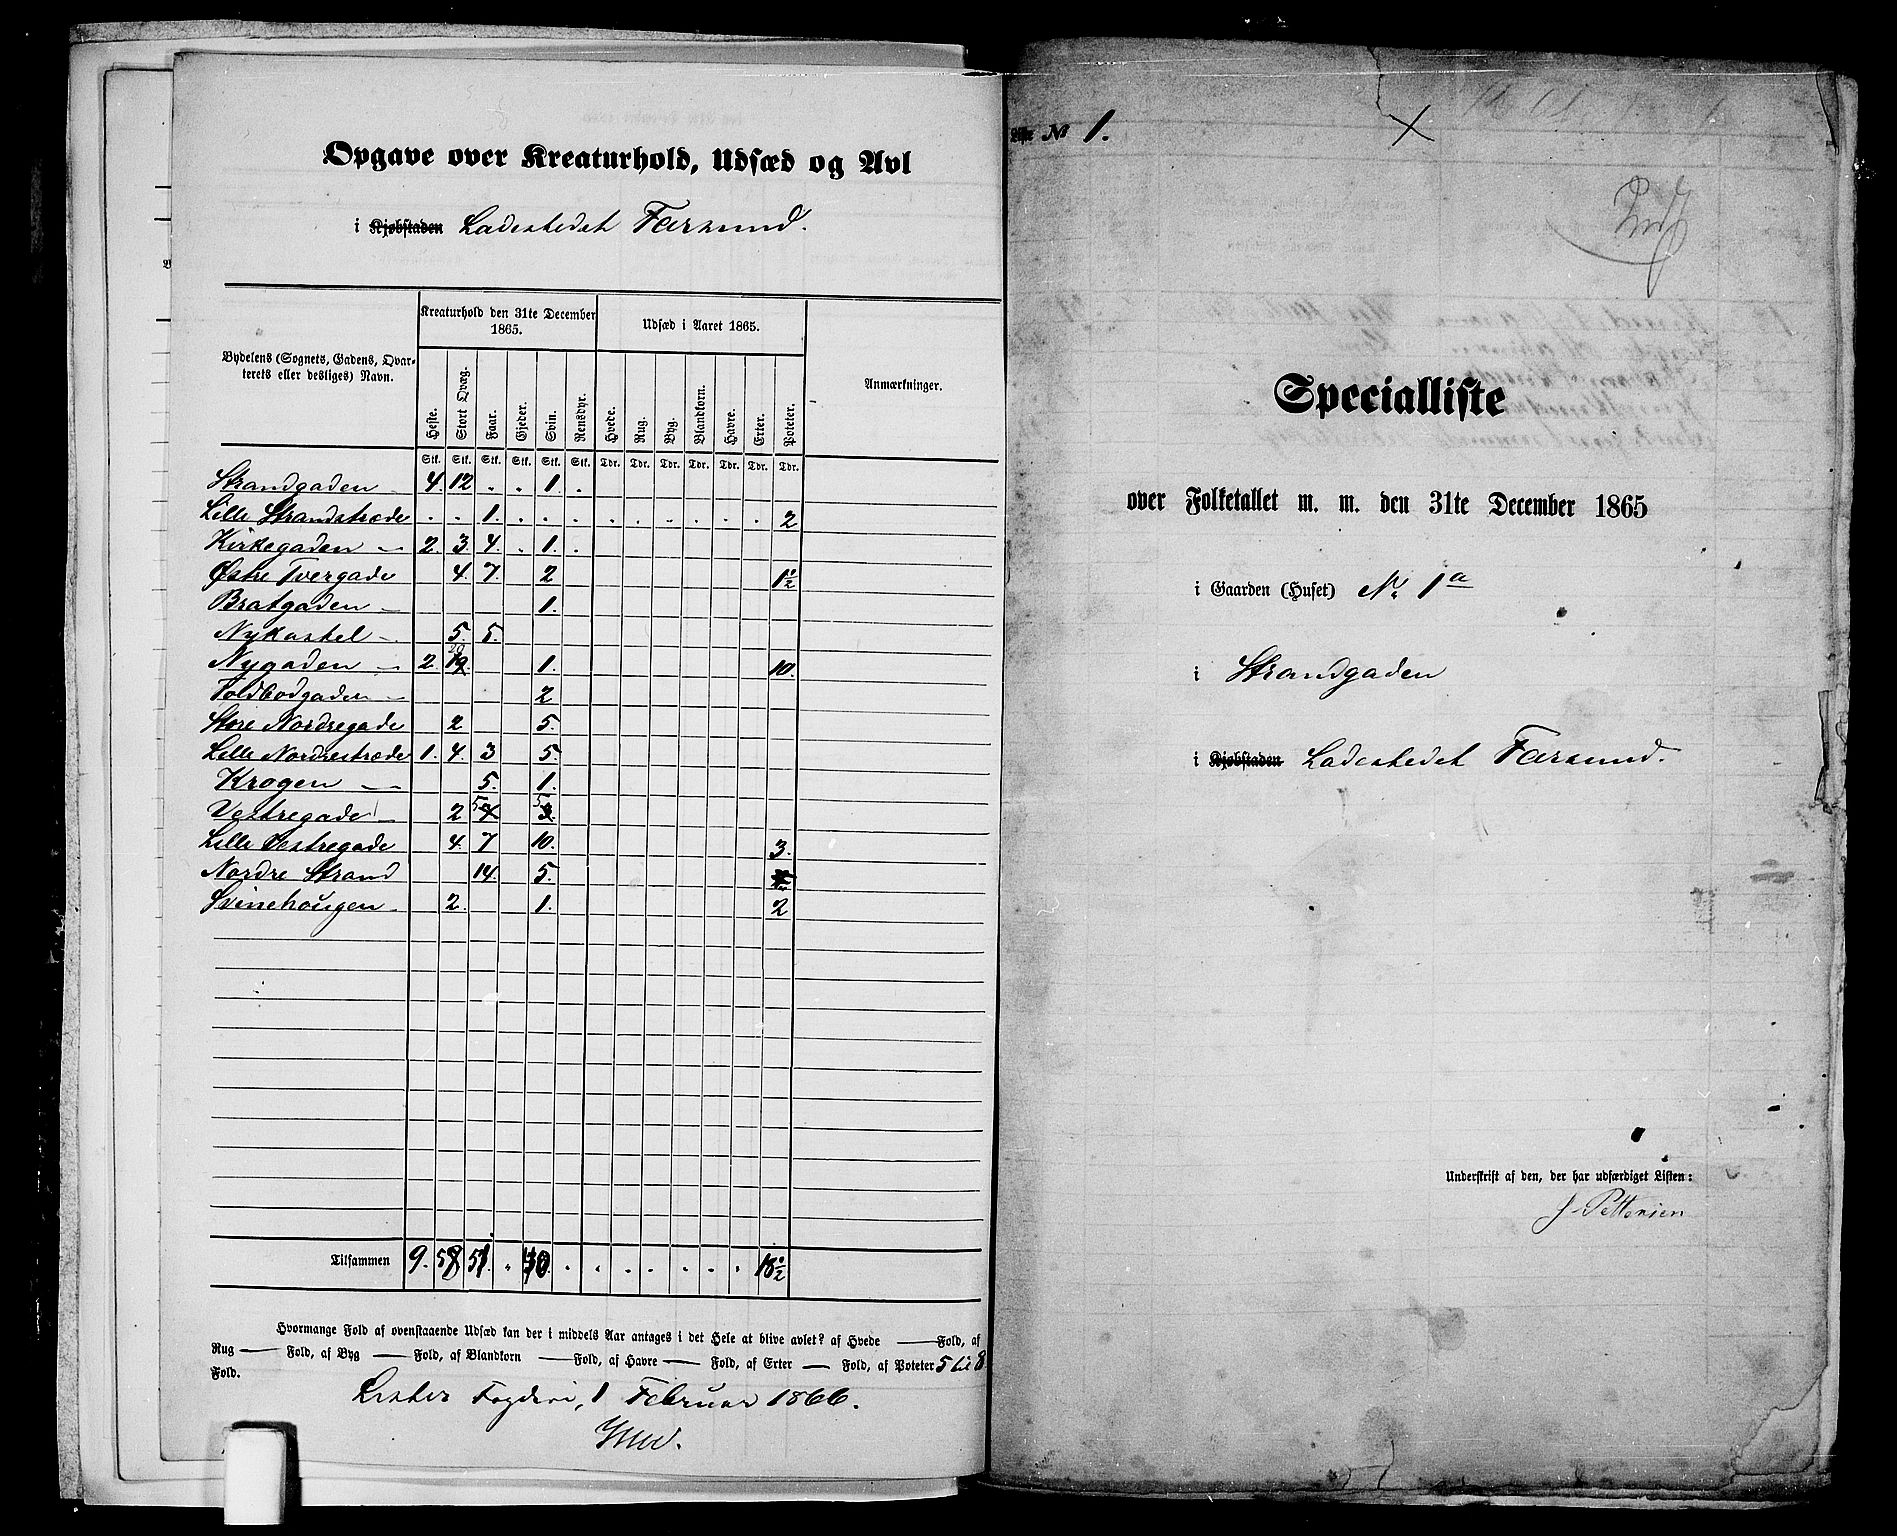 Opgave over Kreaturhold, Udsæd og Avl
i Kjøbstaden Ladestedet Farsund.
Bydelens (Sognets, Gadens, Qvarterets eller desliges) Navn.
Kreaturhold den 31te December 1865.
Udsæd i Aaret 1865.
Anmærkninger.
Heste. Stort Qvæg. Faar. Gjeder. Svin. Rensdyr. Hvede. Rug. Byg. Blandkorn. Havre. Erter. Poteter.
Stk. Stk. Stk. Stk. Stk. Stk. Tdr. Tdr. Tdr. Tdr. Tdr. Tdr. Tdr.
Strandgaden 4. 12 . . 1. .
Lille Strandstræde . . 1. . . . . . . . . . 2
Kirkegaden — 2. 3. 4. . 1. .
Østre Tvergade 4. 7. 2 1 1/2
Bratgaden — 1.
Nykastel — 5. 5.
Nygaden — 2. 20 1. 10.
Toldbodgaden — 2
Store Nordregade 2 5.
Lille Nordrestræde 1. 4. 3 5.
Krogen — 5. 1.
Vestregade — 2 5 4 5 3.
Lille Vestregade 4. 7 10. 3.
Nordre Strand 14. 5.
Svinehougen 2. 1. 2
Tilsammen 9. 58 51. . 40 . . . . . . . 18 1/2
Hvormange Fold af ovenstaaende Udsæd kan der i middels Aar antages i det Hele at blive avlet? af Hvede — Fold, af
Rug — Fold, af Byg — Fold, af Blandkorn — Fold, af Havre — Fold, af Erter — Fold, af Poteter 5 til 8
Fold.
Listers Fogderi, 1 Februar 1866.
№ 1.
Specialliste
over Folketallet m. m. den 31te December 1865
i Gaarden (Huset) No. 1a
i Strandgaden
i Kjøbstaden Ladestedet Farsund.
Underskrift af den, der har udfærdiget Listen: